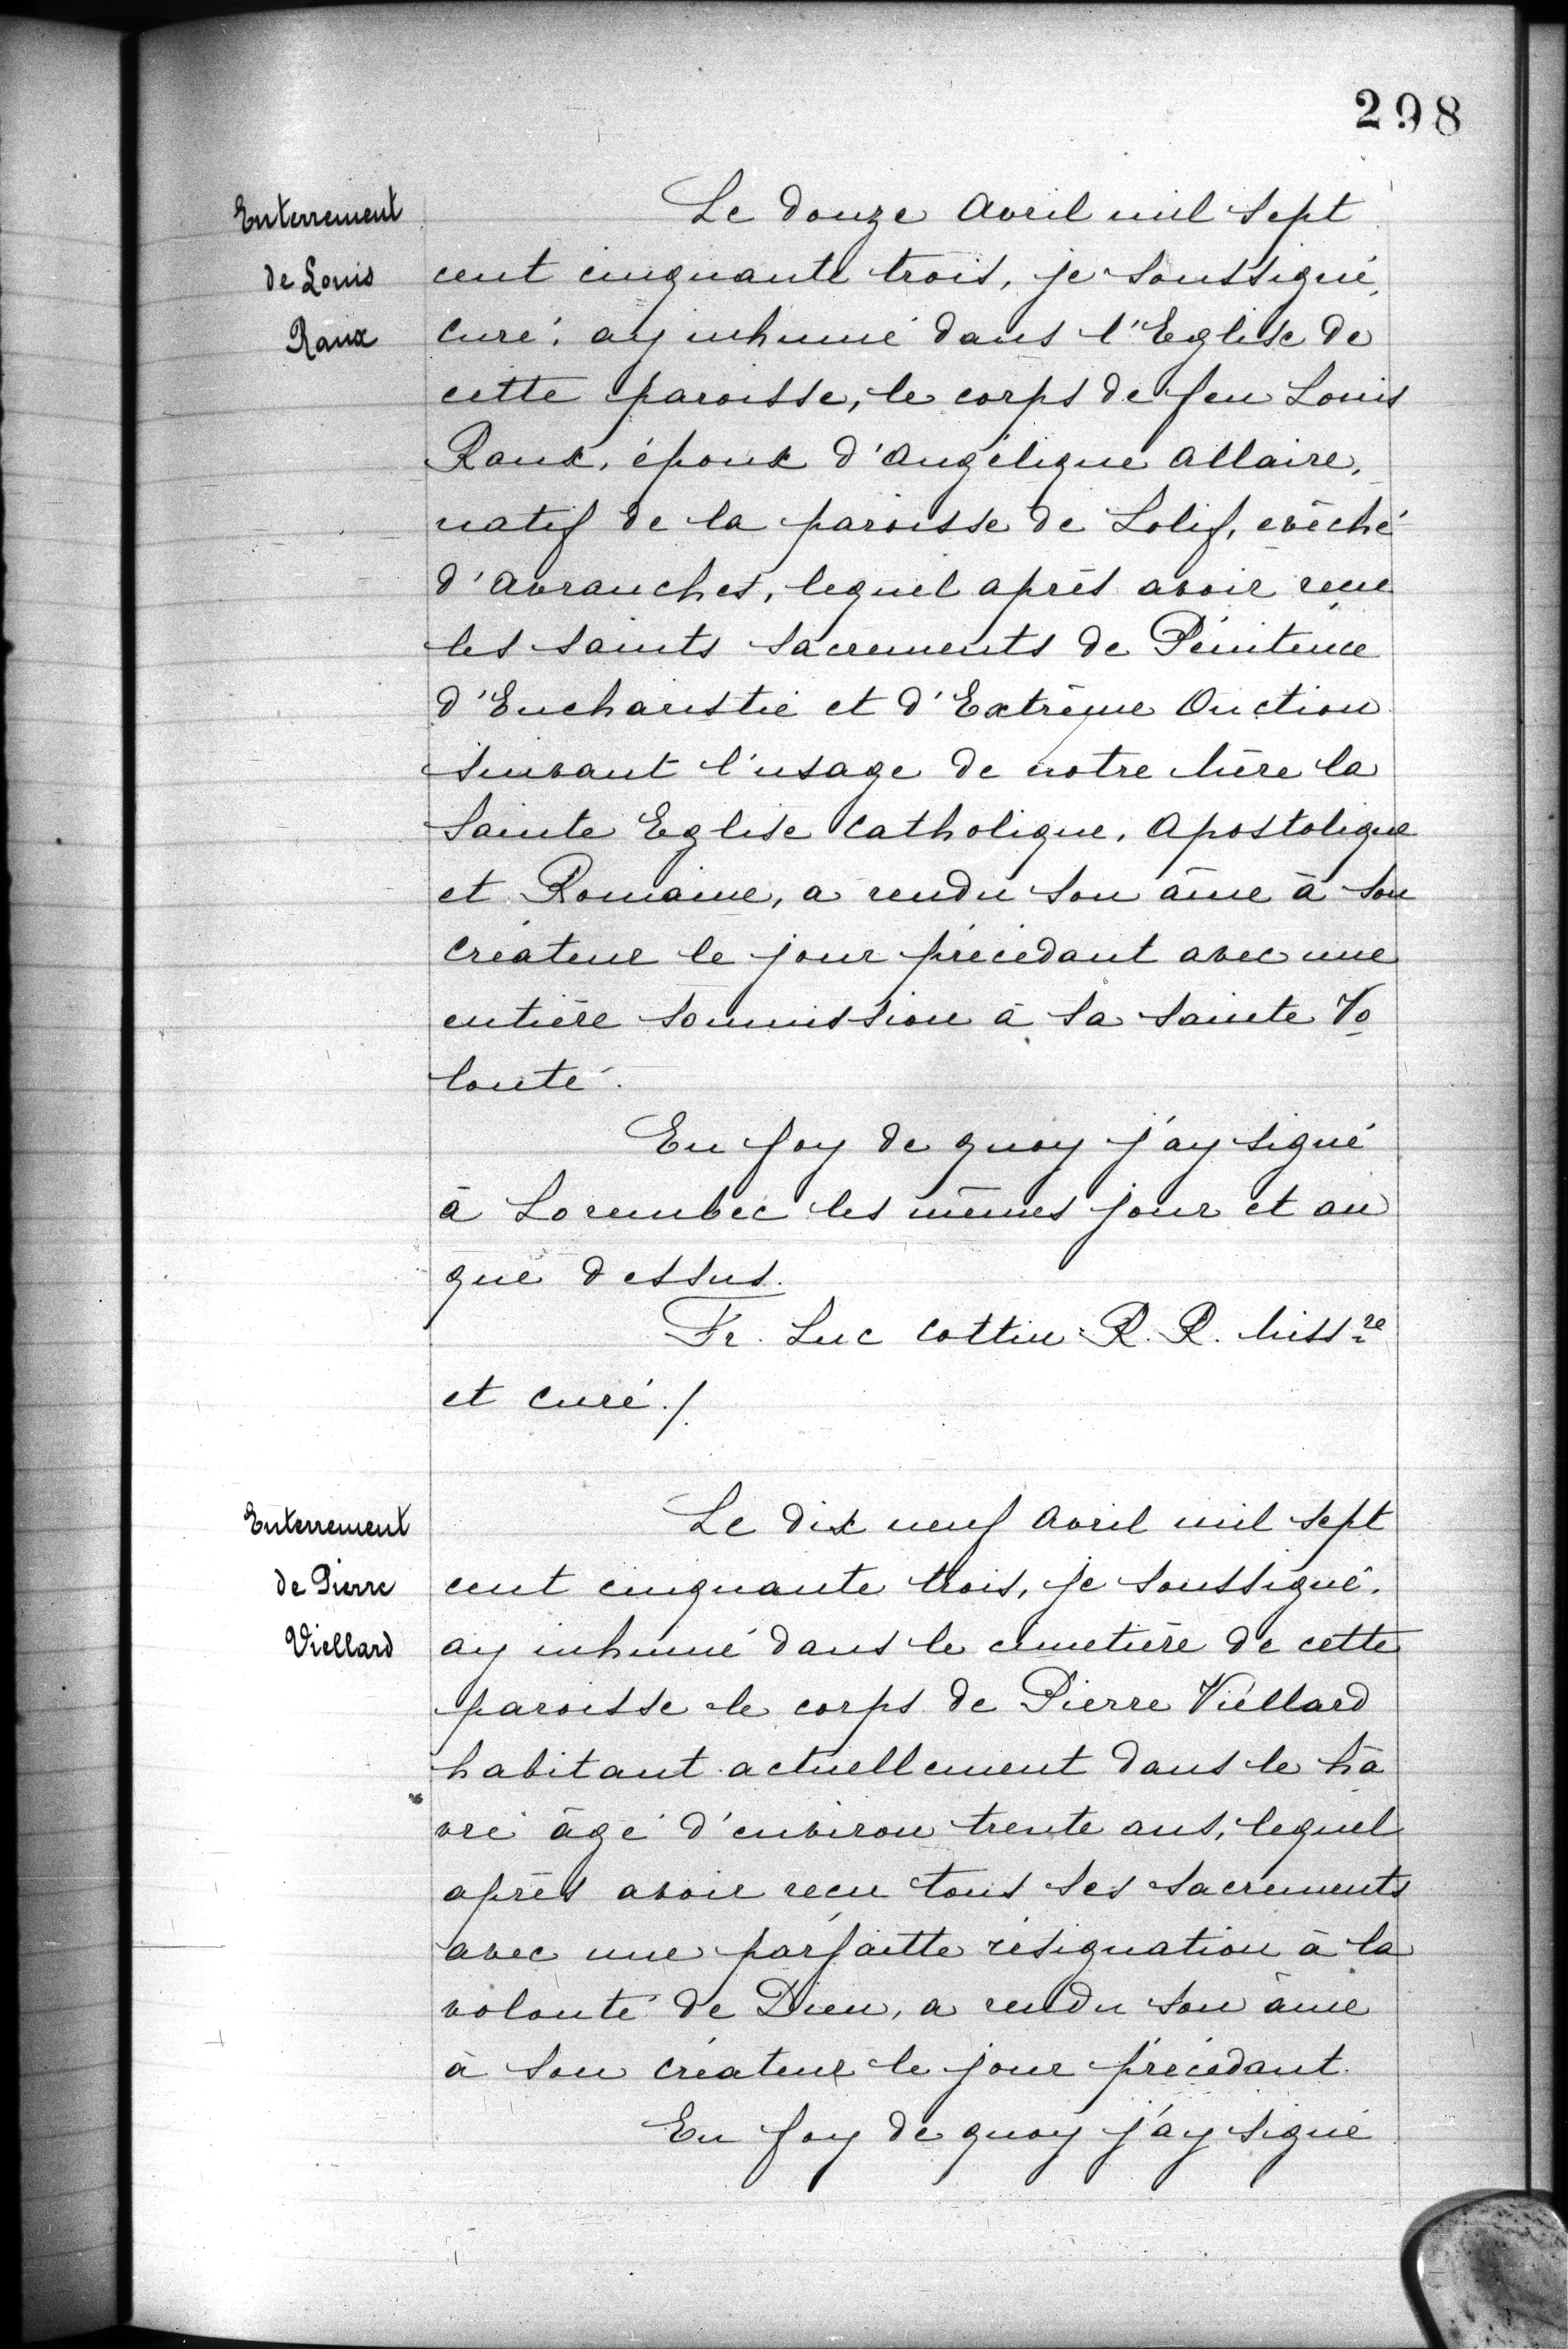 298
Enterrement
de Louis
Raux
Le douze Avril mil sept
cent cinquante trois, je soussigné,
curé, ay inhumé dans l'Eglise de
cette paroisse, le corps de feu Louis
Raux, époux d'Angélique Allaire,
natif de la paroisse de Lolif, evêché
d'Avranches, lequel après avoir reçu
les saints sacrements de Pénitence
d'Eucharistie et d'Extrême Onction
suivant l'usage de notre Mère la
Sainte Eglise Catholique, Apostolique
et Romaine, a rendu son âme à son
créateur le jour précédant avec une
entière soumission à sa sainte Vo
lonté.
En foy de quoy j'ay signé
à Lorembec les mêmes jour et an
que dessus.
Fr. Luc Cottin R. R. Miss.re
et curé./.
Enterrement
de Pierre
Viellard
Le dix neuf Avril mil sept
cent cinquante trois, je soussigné,
ay inhumé dans le cimetière de cette
paroisse le corps de Pierre Viellard
habitant actuellement dans le hâ
vre âgé d'environ trente ans, lequel
après avoir reçu tous ses sacrements
avec une parfaitte résignation à la
volonté de Dieu, a rendu son âme
à son créateur le jour précédant.
En foy de quoy j'ay signé